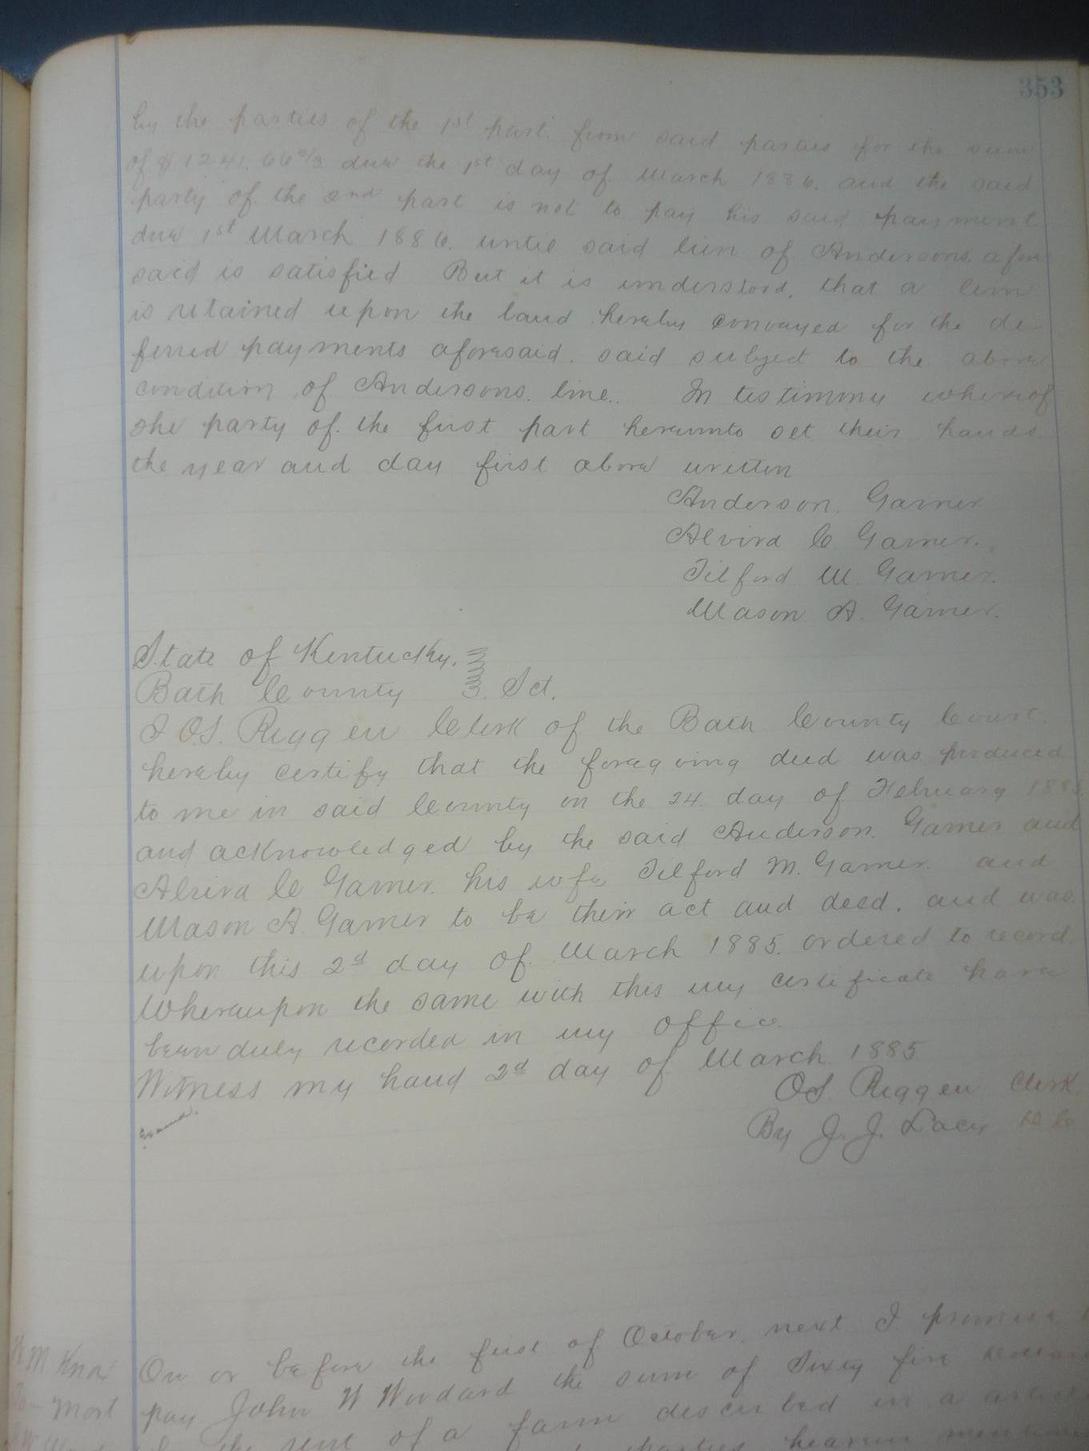 353
by the parties of the 1st part from said parties for the sum
of $1241.66 2/3 due the 1st day of March 1886. and the said
party of the 2nd part is not to pay his said payment
due 1st March 1886. until said lien of Andersons afore
said is satisfied But it is understood, that a lien
is retained upon the land hereby conveyed for the de-
ferred payments aforesaid. said subject to the above
condition of Andersons. line.. In testimony whereof
the party of the first part hereunto set their hands
the year and day first above written
Anderson. Garner
Alvira C Garner.
Tilford M. Garner.
Mason A. Garner.
State of Kentucky.
Bath County Sct.
I O.S. Riggen Clerk of the Bath County Court.
hereby certify that the foregoing deed was produced
to me in said County on the 24. day of February 1885
and acknowledged by the said Anderson. Garner and
Alvira C Garner. his wife Tilford M. Garner and
Mason A Garner to be their act and deed. and was
upon this 2d day of March 1885. ordered to record
Whereupon the same with this my certificate have
been duly recorded in my office.
Witness my hand 2d day of March 1885
O.S. Riggen Clerk
By J. J. Lacy D C
W M Knox On or before the first of October. next I promise
To Mort pay John W Woodard the sum of Sixty five dollars
the rent of a farm described in a
parties herein